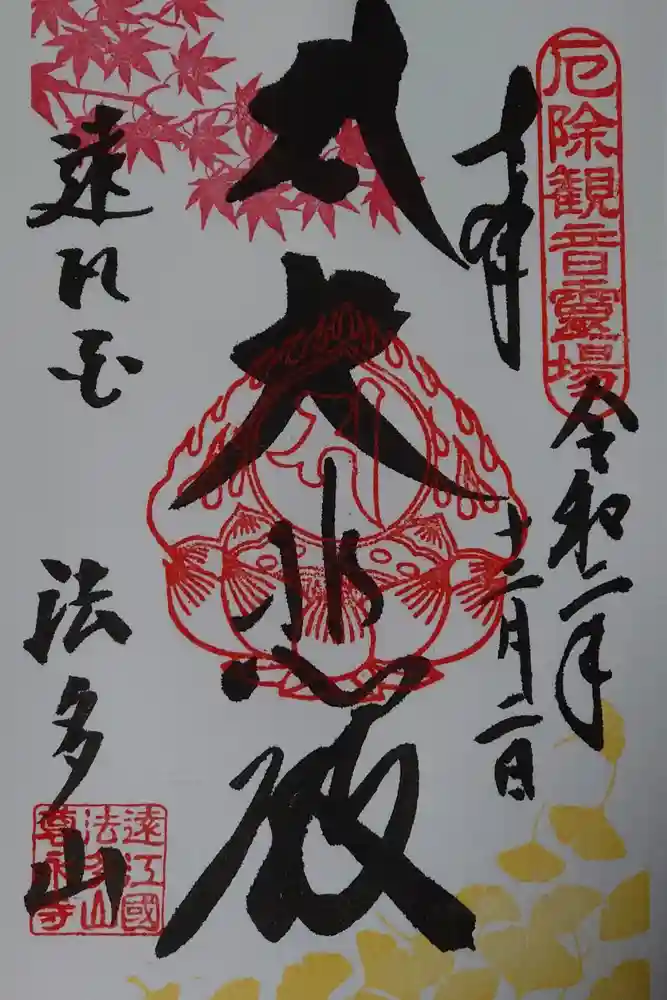 厄除観音霊場
奉拝
令和二年
十一月二日
大悲殿
遠州
法多山
遠江國
法多山
尊永寺